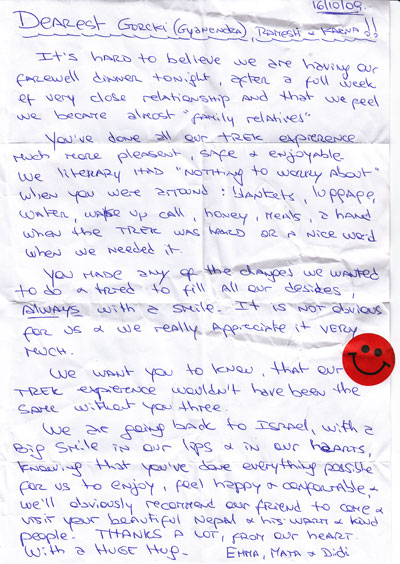 16/10/09.
DEAREST GORCKI (GYANENDRA), RAMESH & KARNA!!
It's HARD to believe we are having our
farewell dinner tonight, after a full week
of very close relationship and that we feel
we became almost "family relatives"
You've done all our TREK expierence
much more pleasent, safe & enjoyable.
We literary HAD "NOTHING to worry About"
when you were around: blankets, luggage,
water, wake up call, honey, meals, a hand
when the TREK was hard or a nice word
when we needed it.
You made any of the changes we wanted
to do & tried to fill all our desires,
ALWAYS with a smile. It is not obvious
for us & we really appreciate it very
much.
We want you to know, that our
TREK experience wouldn't have been the
same without you three.
We are going back to Israel, with a
big smile in our lips & in our hearts,
knowing that you've done everything possible
for us to enjoy, feel happy & confortable, &
we'll obviously recommend our friend to come &
visit your beautiful Nepal & his warm & kind
people. THANKS A LOT, from our heart.
With a HUGE Hug. Emma, Maya & Didi